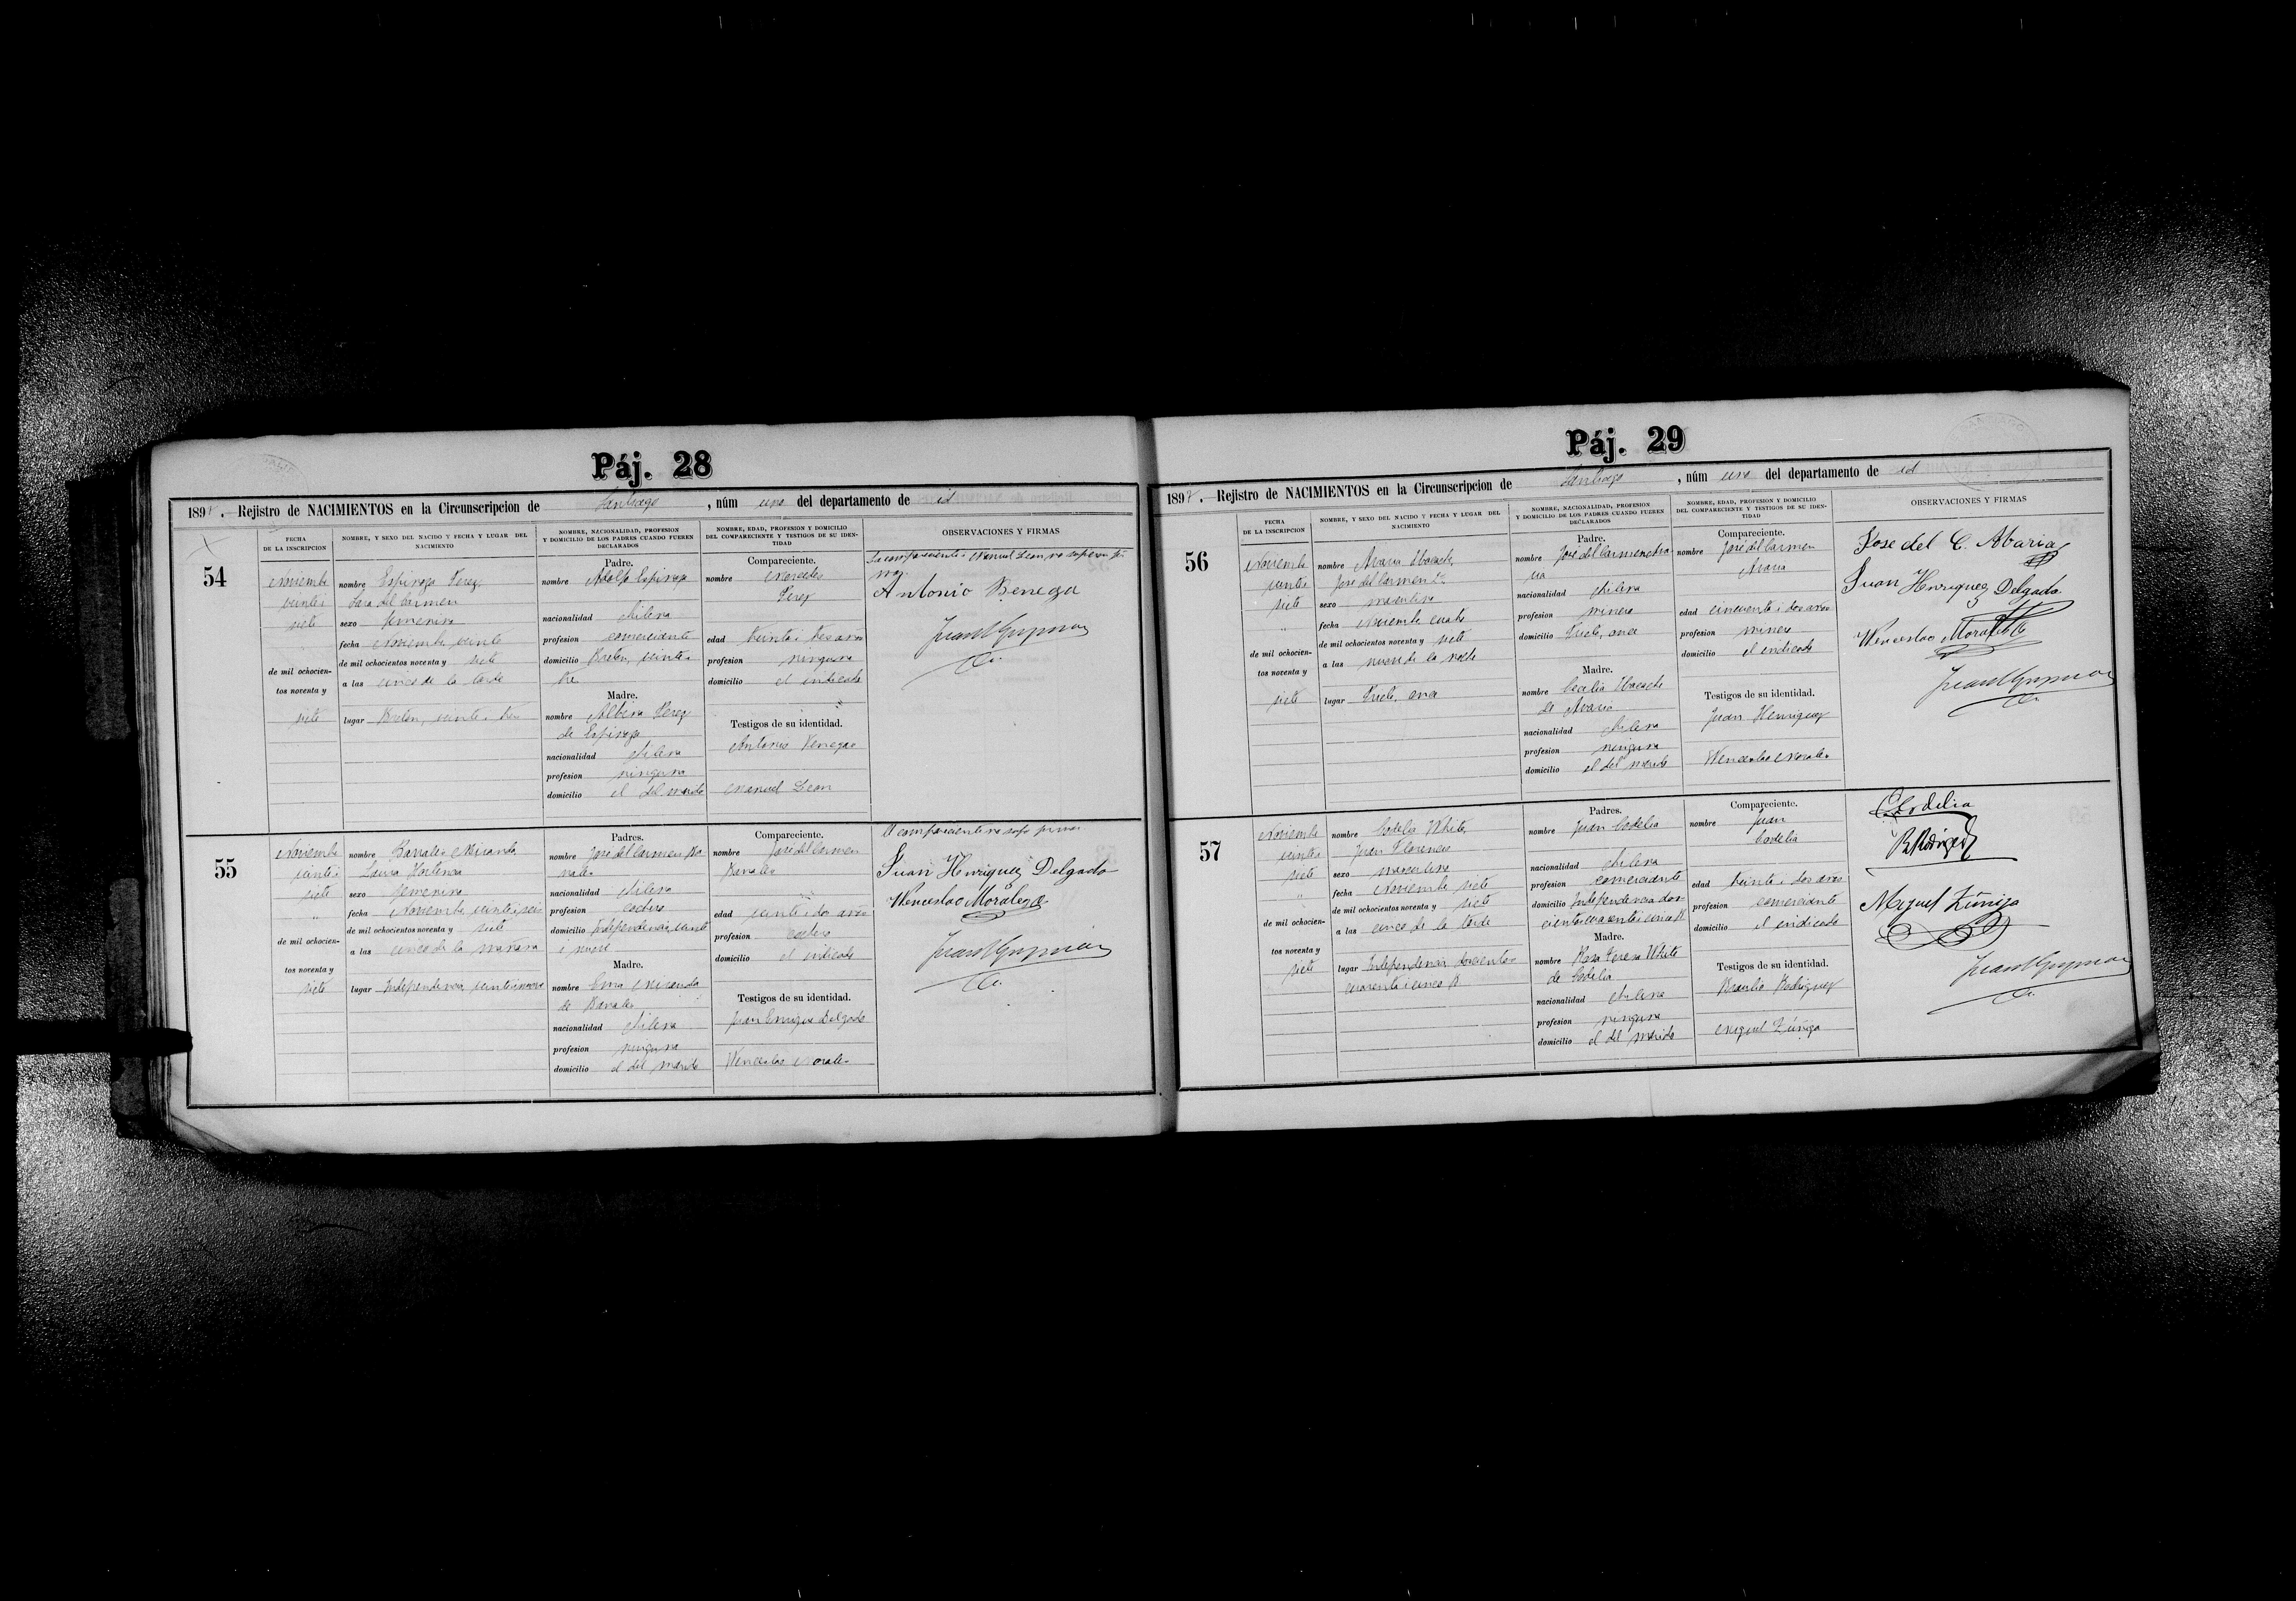 Páj. 28
1897. Rejistro de NACIMIENTOS en la Circunscripcion de Santiago, núm uno del departamento de id
FECHA DE LA INSCRIPCION
NOMBRE, Y SEXO DEL NACIDO Y FECHA Y LUGAR DEL NACIMIENTO
NOMBRE, NACIONALIDAD, PROFESION Y DOMICILIO DE LOS PADRES CUANDO FUEREN DECLARADOS
NOMBRE, EDAD, PROFESION Y DOMICILIO DEL COMPARECIENTE Y TESTIGOS DE SU IDENTIDAD
OBSERVACIONES Y FIRMAS
54
Noviembre
veinte i
siete
de mil ochocien-
tos noventa y
siete
nombre Espinoza Perez,
Sara del Carmen
sexo femenino
fecha Noviembre veinte
de mil ochocientos noventa y siete
a las cinco de la tarde
lugar veinte i tres
Padre.
nombre Adolfo Espinoza
nacionalidad chilena
profesion comerciante
domicilio veinte i
tres
Madre.
nombre Albina Perez
de Espinoza
nacionalidad chilena
profesion ninguna
domicilio el del marido
Compareciente.
nombre Mercedes
Perez
edad treinta i tres años
profesion ninguna
domicilio el indicado
Testigos de su identidad.
Antonio Venegas
Manuel Leon
La compareciente i Manuel Leon no supieron fir-
mar
Antonio Benega
55
Noviembre
veinte i
siete
"
de mil ochocien-
tos noventa y
siete
nombre Banales Miranda
Laura Hortensia
sexo femenino
fecha Noviembre veinte i seis
de mil ochocientos noventa y siete
a las cinco de la mañana
lugar Independencia, veinte i nueve
Padres.
nombre José del Carmen Ba
nales
nacionalidad chilena
profesion cochero
domicilio Independencia veinte
i nueve
Madre.
nombre Ema Miranda
de Banales
nacionalidad chilena
profesion ninguna
domicilio el del marido
Compareciente.
nombre José del Carmen
Banales
edad veinte i dos años
profesion cochero
domicilio el indicado
Testigos de su identidad.
Juan Enriquez Delgado
Wenceslao Morales
El compareciente no supo firmar
Juan Henriquez Delgado
Wenceslao Morales
Páj. 29
1897. Rejistro de NACIMIENTOS en la Circunscripcion de Santiago, núm uno del departamento de id
FECHA DE LA INSCRIPCION
NOMBRE, Y SEXO DEL NACIDO Y FECHA Y LUGAR DEL NACIMIENTO
NOMBRE, NACIONALIDAD, PROFESION Y DOMICILIO DE LOS PADRES CUANDO FUEREN DECLARADOS
NOMBRE, EDAD, PROFESION Y DOMICILIO DEL COMPARECIENTE Y TESTIGOS DE SU IDENTIDAD
OBSERVACIONES Y FIRMAS
56
Noviembre
veinte i
siete
"
de mil ochocien-
tos noventa y
siete
nombre Avaria
José del Carmen 2º
sexo masculino
fecha Noviembre cuatro
de mil ochocientos noventa y siete
a las nueve de la noche
lugar once
Padre.
nombre José del Carmen Ava
ria
nacionalidad chilena
profesion minero
domicilio once
Madre.
nombre Cecilia
de Avaria
nacionalidad chilena
profesion ninguna
domicilio el del marido
Compareciente.
nombre José del Carmen
Avaria
edad cincuenta i dos años
profesion minero
domicilio el indicado
Testigos de su identidad.
Juan Henriquez
Wenceslao Morales
Jose del C. Abaria
Juan Henriquez Delgado
Wenceslao Morales
57
Noviembre
veinte i
siete
"
de mil ochocien-
tos noventa y
siete
nombre Codelia White,
Juan Florencio
sexo masculino
fecha Noviembre siete
de mil ochocientos noventa y siete
a las cinco de la tarde
lugar Independencia doscientos
cuarenta i cinco B
Padres.
nombre Juan Codelia
nacionalidad chilena
profesion comerciante
domicilio Independencia dos-
cientos cuarenta i cinco B
Madre.
nombre Rosa Teresa White
de Codelia
nacionalidad chilena
profesion ninguna
domicilio el del marido
Compareciente.
nombre Juan
Codelia
edad treinta i dos años
profesion comerciante
domicilio el indicado
Testigos de su identidad.
Braulio Rodriguez
Miguel Zúñiga
B Rodriguez
Miguel Zúniga